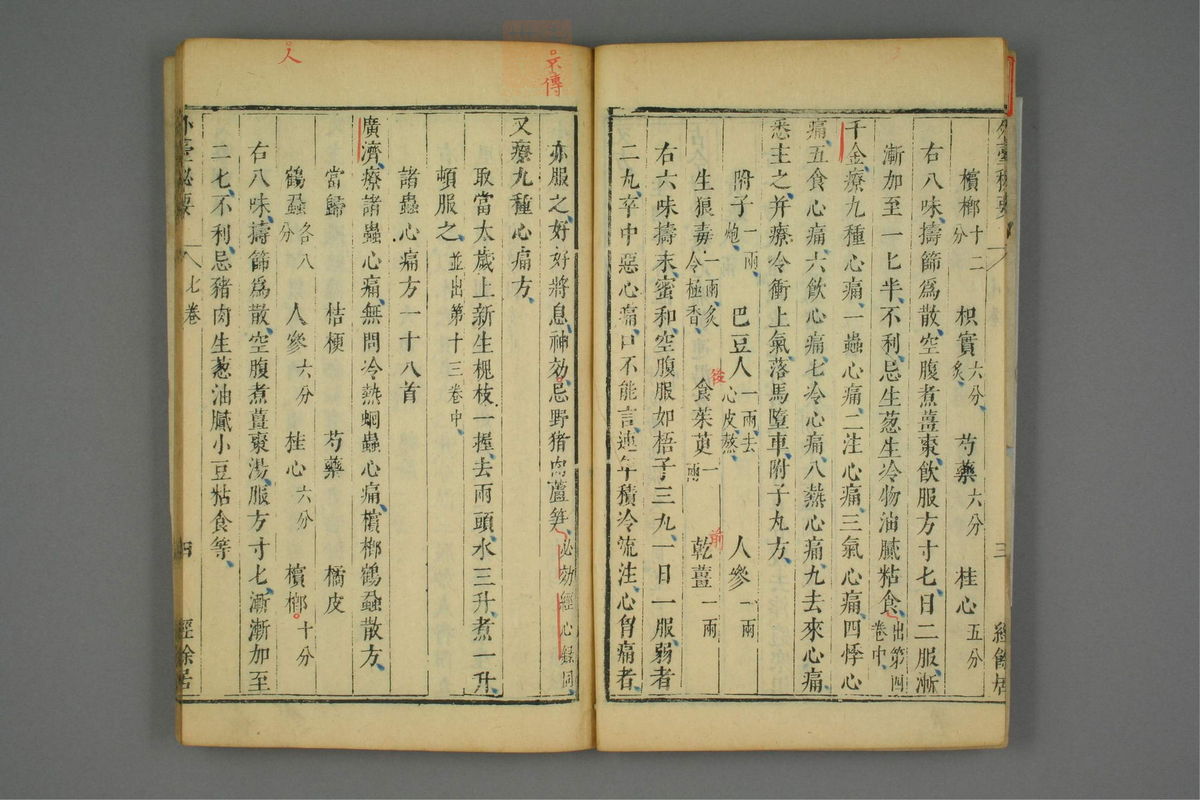 檳榔十二分 枳實六分炙 芍藥六分 桂心五分
右八味擣篩爲散空腹煮薑棗飲服方寸匕日二服漸
漸加至一匕半不利忌生葱生冷物油膩粘食出第四卷中
千金療九種心痛一蟲心痛二注心痛三氣心痛四悸心
痛五食心痛六飲心痛七冷心痛八熱心痛九去來心痛
悉主之并療冷衝上氣落馬墮車附子丸方
附子一兩炮 巴豆人一兩去心皮熬 人參一兩
生狼毒一兩炙令極香 食茱萸一兩 乾薑一兩
後
前
右六味擣末蜜和空腹服如梧子三丸一日一服弱者
二丸卒中惡心痛口不能言連年積冷流注心胷痛者
亦服之好好將息神効忌野猪肉蘆笋必効經心録同
又療九種心痛方
取當太歲上新生槐枝一握去兩頭水三升煮一升
頓服之並出第十三卷中
諸蟲心痛方一十八首
廣濟療諸蟲心痛無問冷熱蛔蟲心痛檳榔鶴蝨散方
當歸 桔梗 芍藥 橘皮
鶴蝨各八分 人參六分 桂心六分 檳榔十分
右八味擣篩爲散空腹煮薑棗湯服方寸匕漸漸加至
二七不利忌豬肉生葱油膩小豆粘食等
外臺秘要 七卷 四 經餘居
外臺秘要 三 經餘居
人
傳